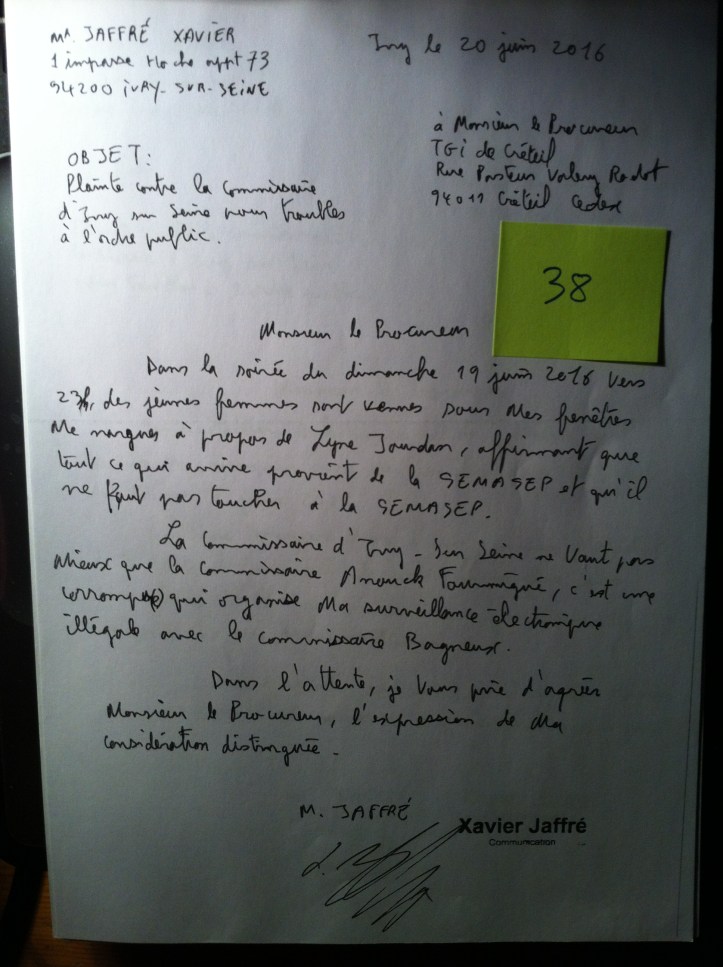 Mr. JAFFRÉ XAVIER
1 impasse Hoche appt 73
94200 IVRY-SUR-SEINE
Ivry le 20 juin 2016
à Monsieur le Procureur
TGI de Créteil
Rue Pasteur Valery Radot
94011 Créteil Cedex
OBJET:
Plainte contre la Commissaire
d'Ivry sur Seine pour troubles
à l'ordre public.
38
Monsieur le Procureur
Dans la soirée du dimanche 19 juin 2016 vers
23h, des jeunes femmes sont venues sous mes fenêtres
me narguer à propos de Lyne Jourdan, affirmant que
tout ce qui arrive provient de la SEMASEP et qu'il
ne faut pas toucher à la SEMASEP.
La Commissaire d'Ivry-Sur Seine ne vaut pas
mieux que la commissaire Anouck Fourmigué, c'est une
qui organise ma surveillance électronique
illégale avec le commissaire Bagneux.
Dans l'attente, je vous prie d'agréer
Monsieur le Procureur, l'expression de ma
considération distinguée.
M. JAFFRÉ
Xavier Jaffré
Communication